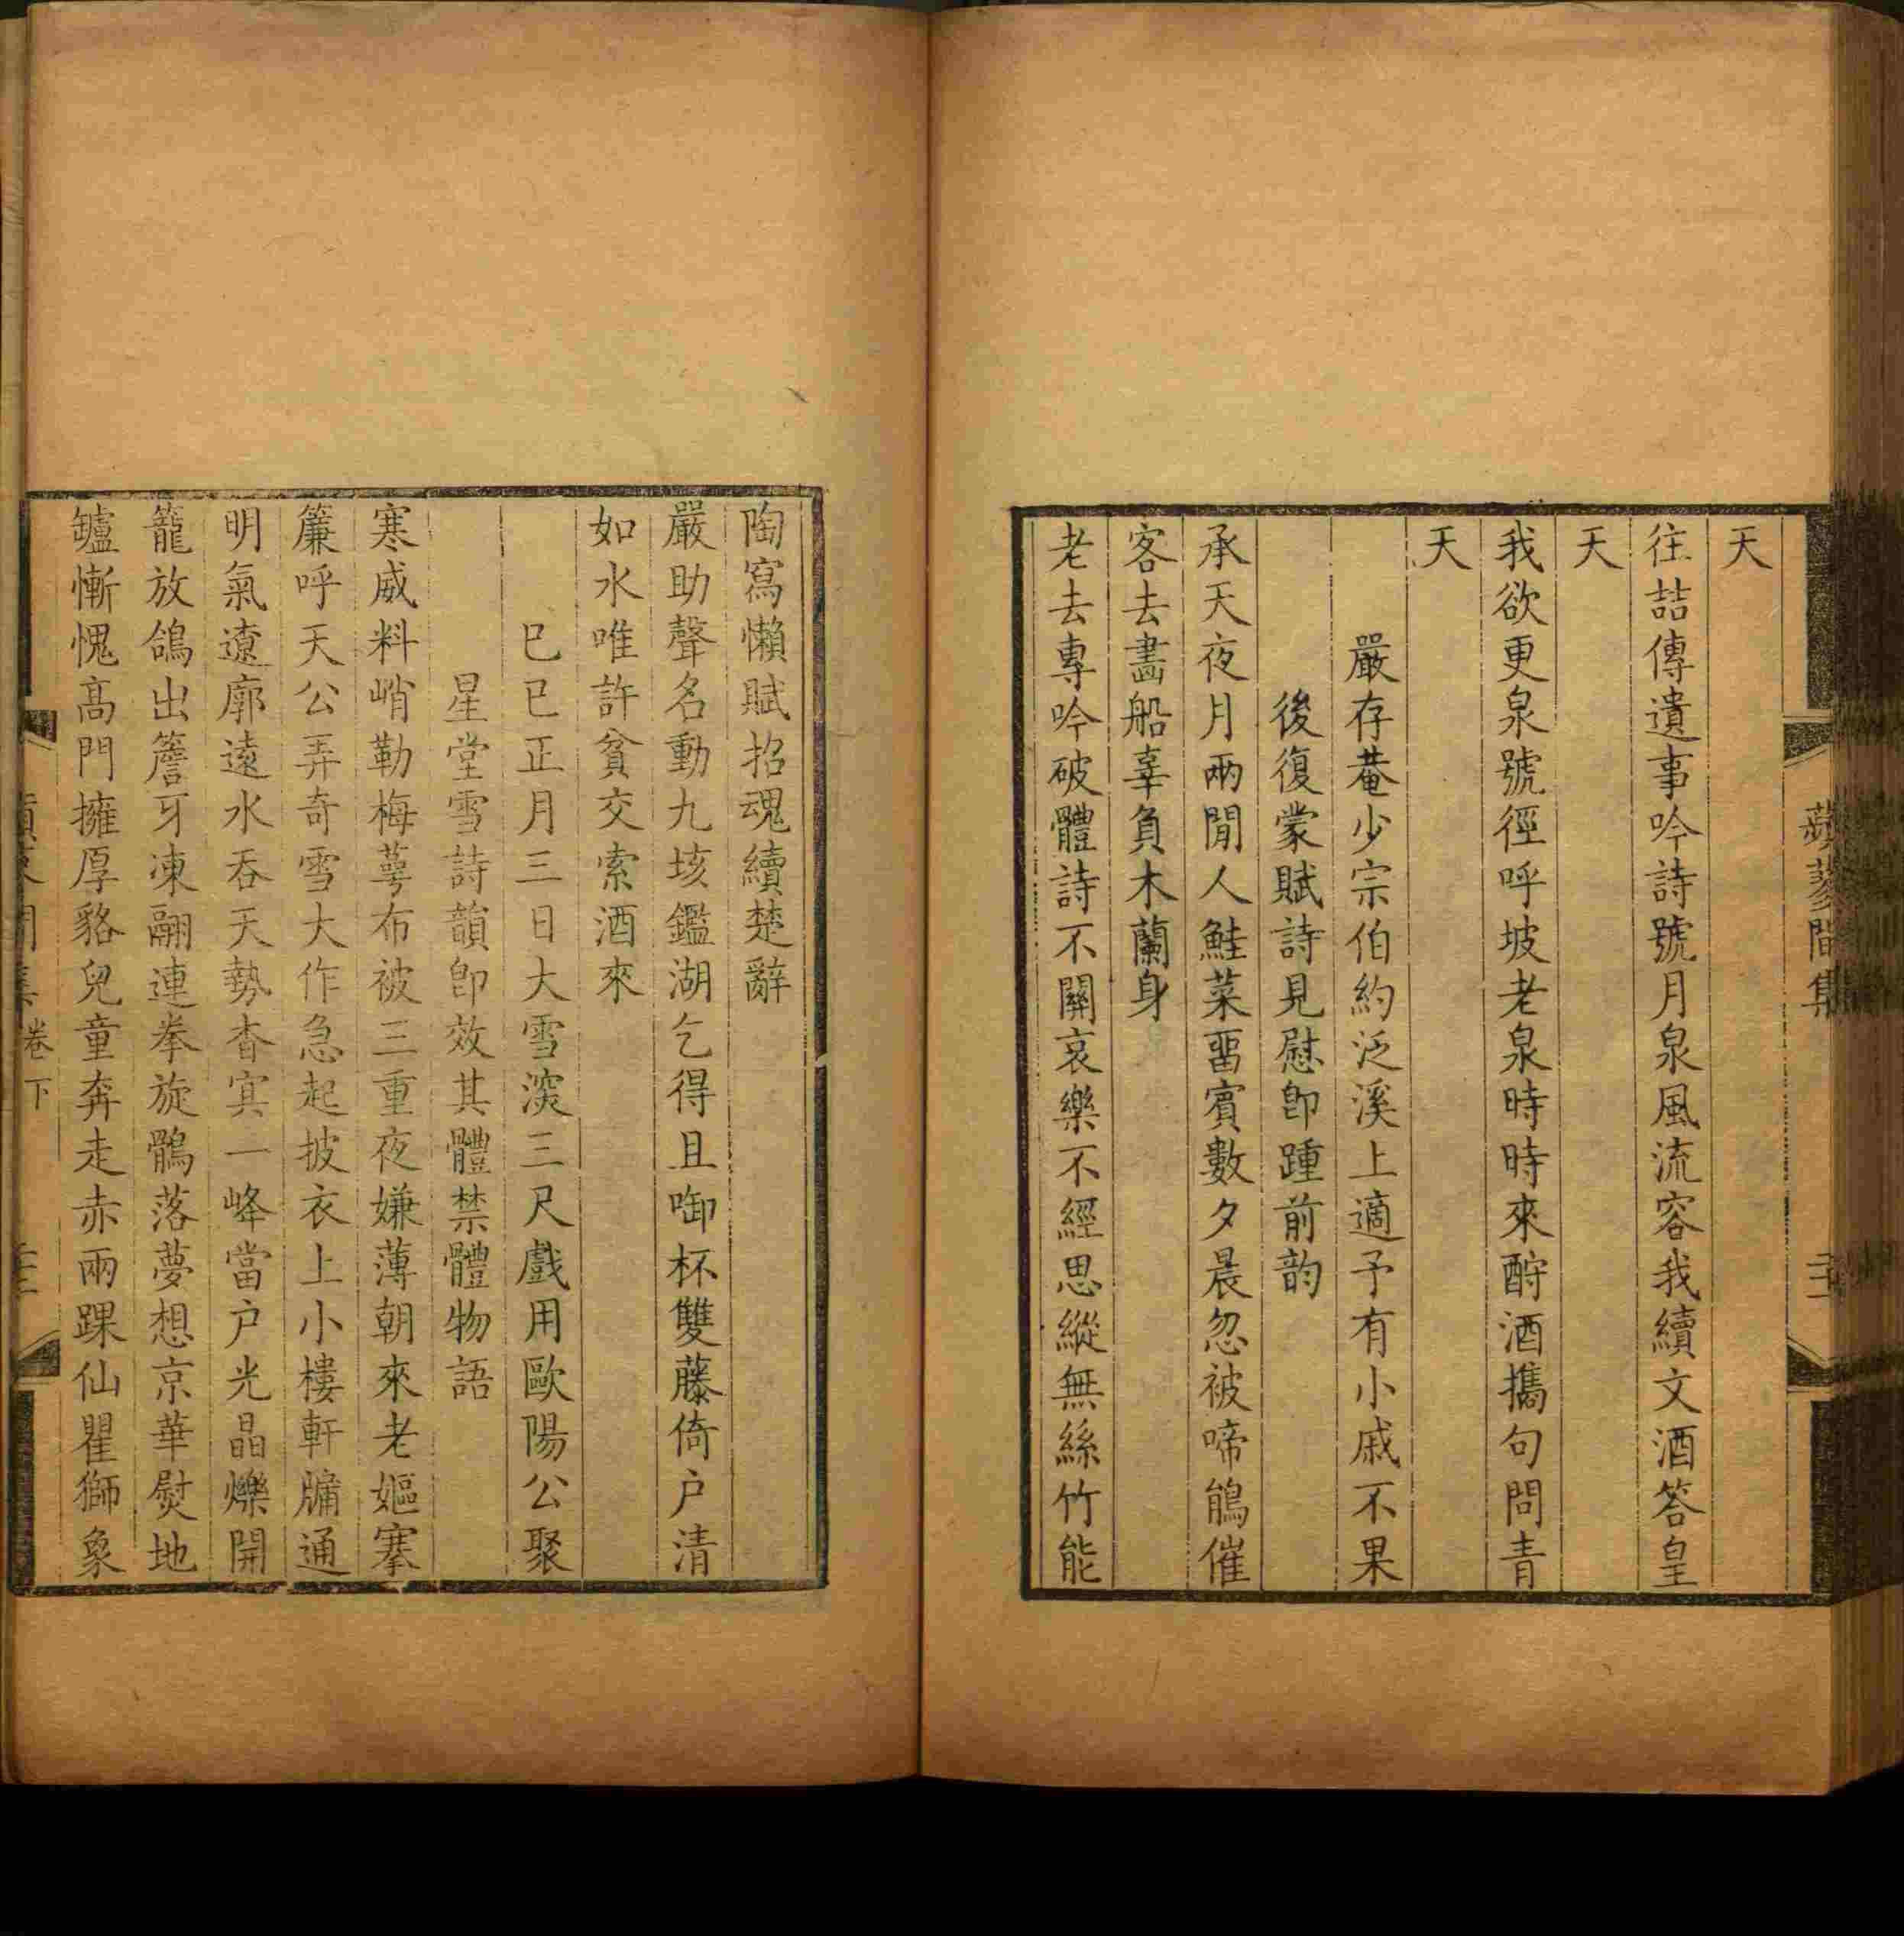 蘋蓼閒集
天
往喆傳遺事吟詩號月泉風流容我續文酒答皇
天
我欲更泉號徑呼坡老泉時時來酹酒攜句問青
天
嚴存菴少宗伯約泛溪上適予有小戚不果
後復蒙賦詩見慰卽踵前韵
承天夜月兩閒人鮭菜畱賓數夕晨忽被啼鵑催
客去畵船辜負木蘭身
老去專吟破體詩不關哀樂不經思縱無絲竹能
陶寫懶賦招魂續楚辭
嚴助聲名動九垓鑑湖乞得且啣杯雙藤倚户清
如水唯許貧交索酒來
已巳正月三日大雪深三尺戲用歐陽公聚
星堂雪詩韻卽效其體禁體物語
寒威料峭勒梅萼布被三重夜嫌薄朝來老嫗搴
簾呼天公弄奇雪大作急起披衣上小樓軒牖通
明氣遼廓遠水吞天勢杳㝠一峰當户光晶爍開
籠放鴿出簷牙凍翮連拳旋鶻落夢想京華熨地
罏慚愧高門擁厚貉兒童奔走赤兩踝仙瞿獅象
卷下